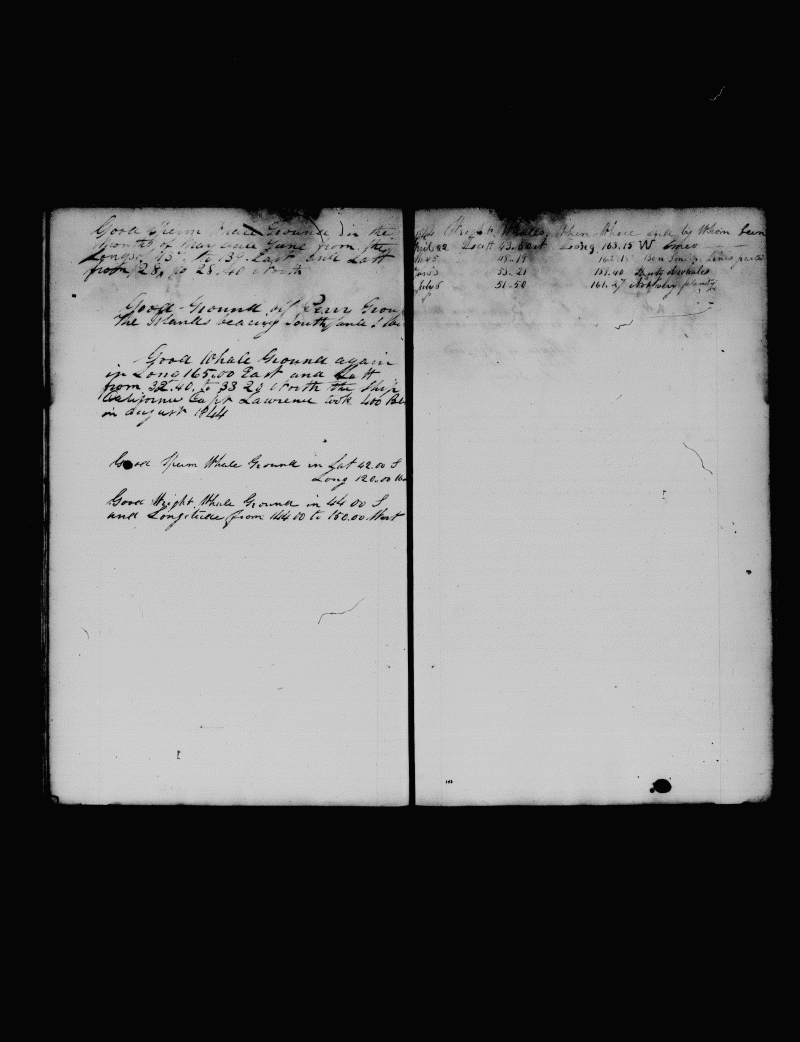 Good Sperm Whale Ground in the
Months of May and June from the
Longs. to 139. East and Latt
from 28, to 28.40 North
Good Ground off
The Islands bearing South and
Good Whale Ground again
in Long 165.00 East and Latt
from 32.40, to 33 20 North the Ship
California Capt Lawrence took 400 Bl
in August 1844
Good Sperm Whale Ground in Lat 42.00 S
Long 120.00 W
Good Wright Whale Ground in 44.00 S
and Longitude from 144 00 to 150.00 West
1844 Wright Whales, When Where and by Whom Seen
April 22 Latt 43. Long 163.15 W
48.19 162.15
53.21 158.40 Plenty of whales
July 5 51.50 161.27 plenty